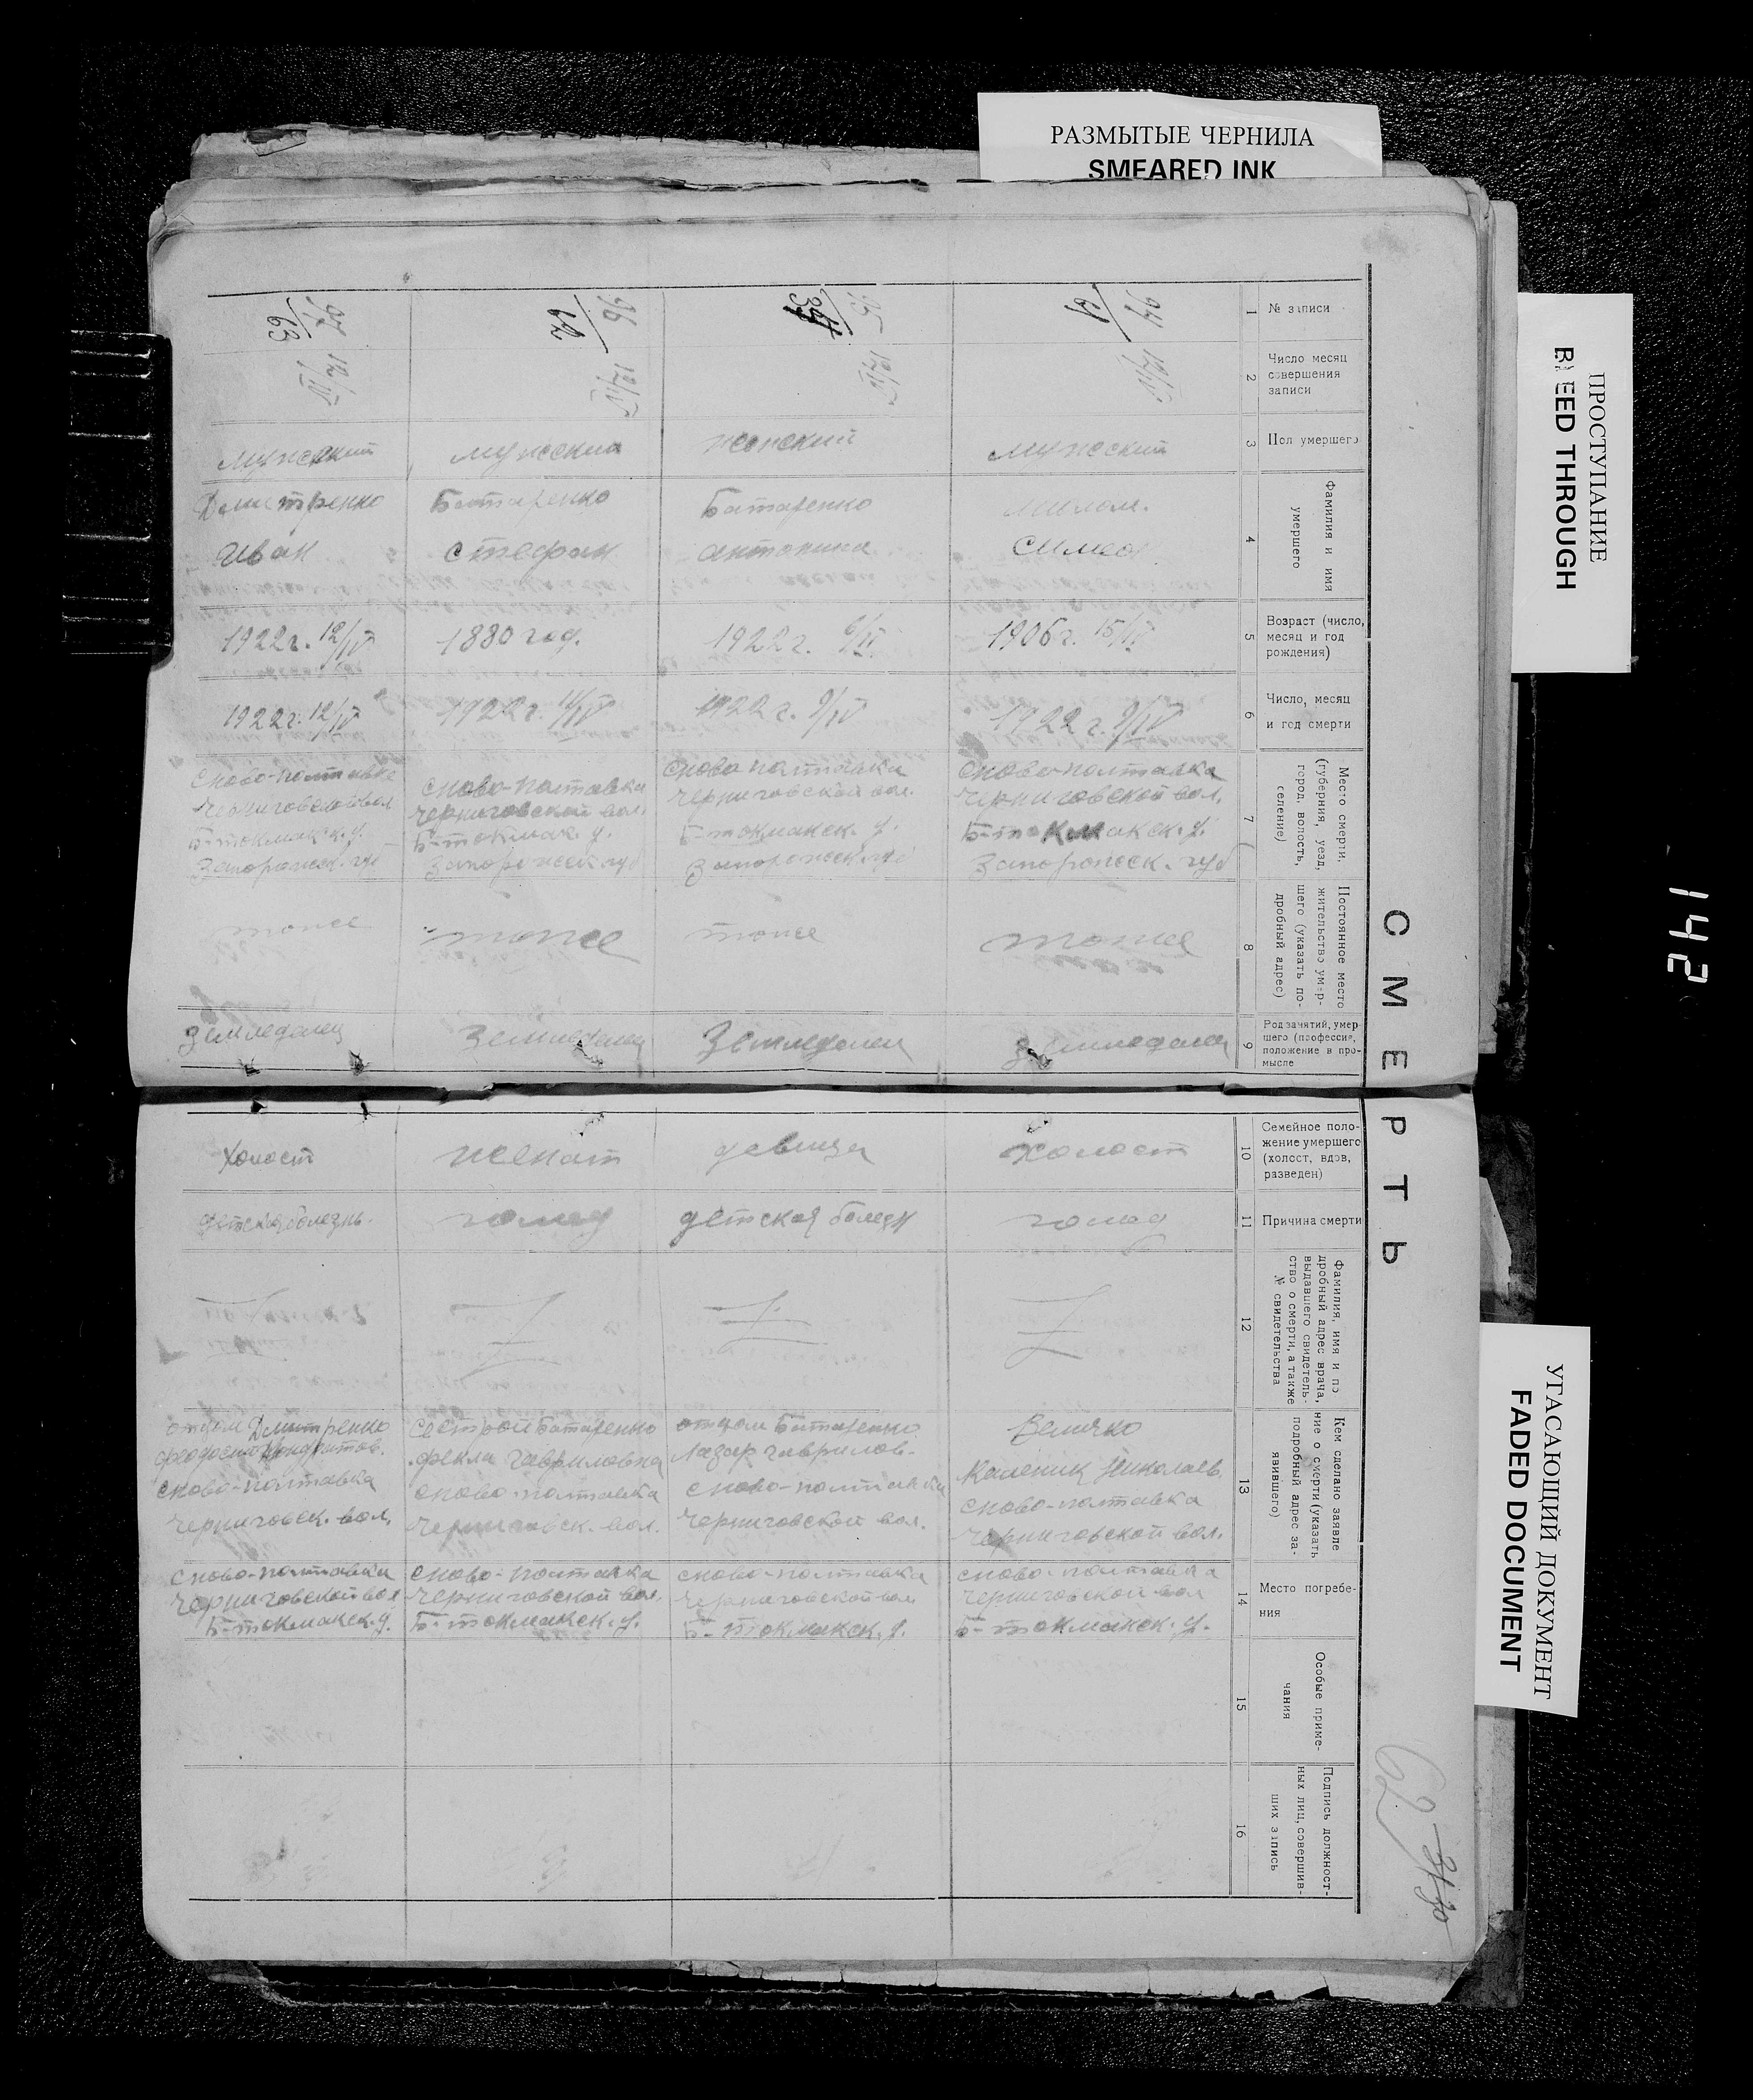 РАЗМЫТЫЕ ЧЕРНИЛА
SMEARED INK
ПРОСТУПАНИЕ
BLEED THROUGH
УГАСАЮЩИЙ ДОКУМЕНТ
FADED DOCUMENT
142
СМЕРТЬ
62
1
№ записи
94
95
96
62
97
63
2
Число месяц
совершения
записи
12/IV
12/IV
12/IV
12/IV
3
Пол умершего
мужеский
женский
мужеский
мужеский
4
Фамилия и имя
умершего
Батаренко
антонина
Батаренко
стефан
Дмитренко
иван
5
Возраст (число,
месяц и год
рождения)
1906 г. 15/IV
1922 г. 6/IV
1880 год.
1922 г. 12/IV
6
Число, месяц
и год смерти
1922 г. 9/IV
1922 г. 9/IV
1922 г. 11/IV
1922 г. 12/IV
7
Место смерти,
(губерния, уезд,
город, волость,
селение)
с ново-полтавка
черниговской вол.
Б-токмакск. у.
Запорожск. губ
с ново полтавка
черниговской вол.
Б-токмакск. у.
Запорожск. губ
с ново-полтавка
черниговской вол.
Б-токмак. у.
Запорожск губ
с ново-полтавка
черниговской вол
Б-токмакск. у.
Запорожск. губ
8
Постоянное место
жительство умер-
шего (указать по-
дробный адрес)
тоже
тоже
тоже
тоже
9
Род занятий, умер
шего (профессия,
положение в про-
мысле
Земледелец
Земледелец
Земледелец
Земледелец
10
Семейное поло-
жение умершего
(холост, вдов,
разведен)
холост
девица
женат
холост
11
Причина смерти
голод
детская болезн
голод
детская болезнь.
12
Фамилия, имя и по
дробный адрес врача,
выдавшего свидетель-
ство о смерти, а также
№ свидетельства
13
Кем сделано заявле
ние о смерти (указать
подробный адрес за-
явившего)
Величко
Каленик Николаев.
с ново-полтавка
черниговской вол.
отцом Батаренко
Лазар гаврилов-
с ново-полтавка
черниговской вол.
сестрой Батаренко
фекла гавриловна
с ново-полтавка
черниговск. вол.
отцом Дмитренко
с ново-полтавка
черниговск. вол.
14
Место погребе-
ния
с ново-полтавка
черниговской вол
Б-токмакск. у.
с ново-полтавка
черниговской вол
Б-токмакск. у.
с ново-полтавка
черниговской вол.
Б-токмакск. у.
с ново-полтавка
черниговской вол
Б-токмакск. у.
15
Особые приме-
чания
16
Подпись должност-
ных лиц, совершив-
ших запись